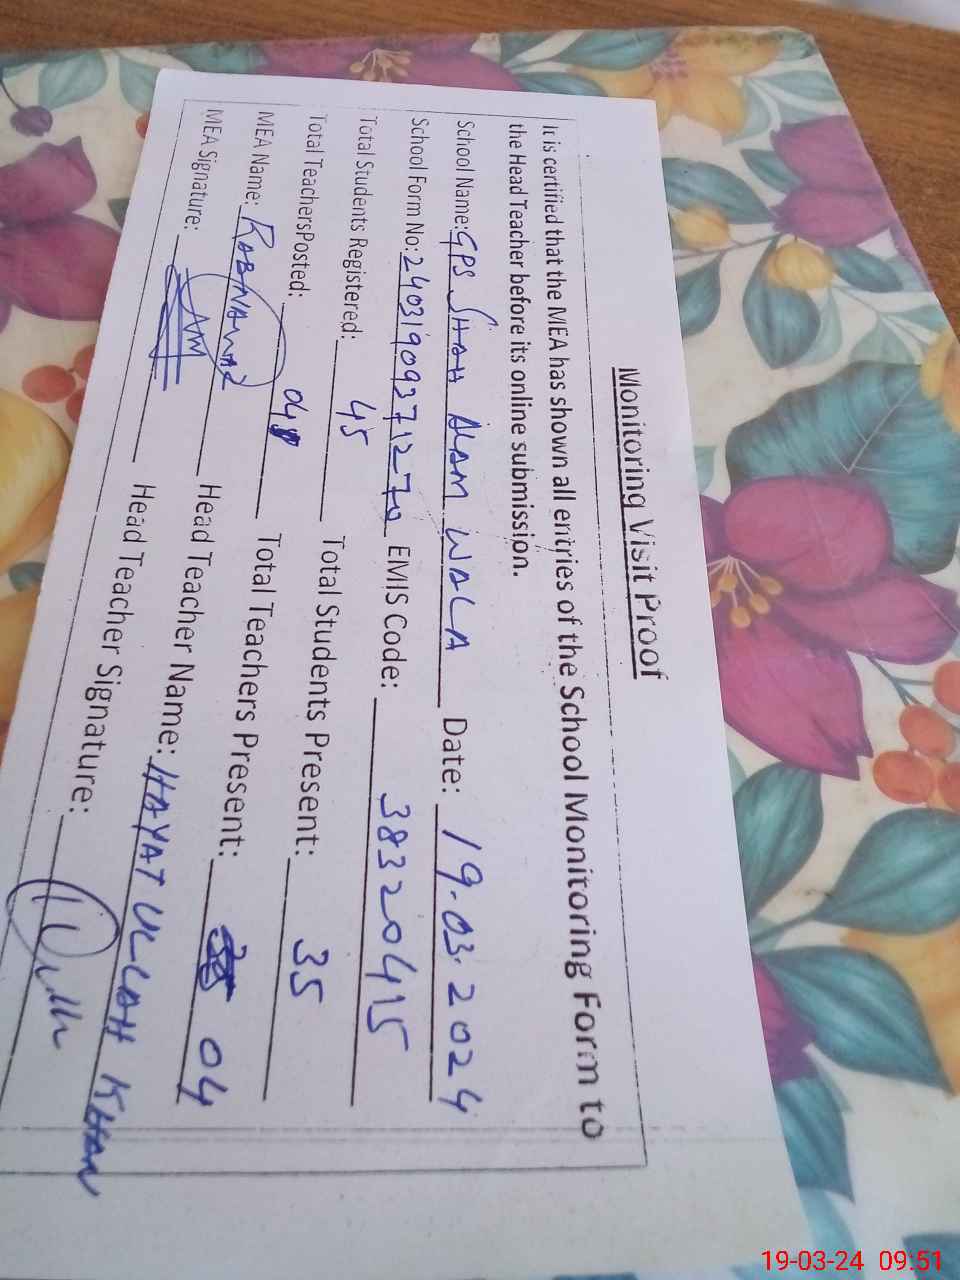 Monitoring Visit Proof
It is certified that the MEA has shown all entries of the School Monitoring Form to
the Head Teacher before its online submission.
School Name: GPS SHAH ALAM WALA Date: 19.03.2024
School Form No: 24031909371270 EMIS Code: 38320415
Total Students Registered: 45 Total Students Present: 35
Total TeachersPosted: 04 Total Teachers Present: 04
MEA Name: RABNAWAZ Head Teacher Name: HAYAT ULLAH KHAN
MEA Signature: Head Teacher Signature:
19-03-24 09:51